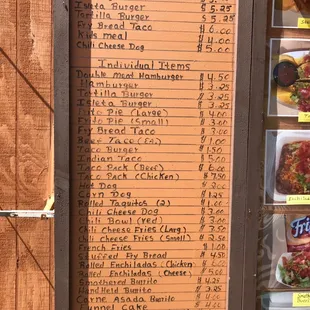 Isleta Burger $ 5.25
Tortilla Burger $ 5.25
Fry Bread Taco $ 6.00
Kids meal $ 4.00
Chili Cheese Dog $ 5.00
Individual Items
Double meat Hamburger $ 4.50
Hamburger $ 3.25
Tortilla Burger $ 3.25
Isleta Burger $ 3.25
Frito Pie (Large) $ 4.00
Frito Pie (Small) $ 3.00
Fry Bread Taco $ 3.00
Beef Taco (EA.) $ 1.00
Taco Burger $ 1.50
Indian Taco $ 5.00
Taco Pack (Beef) $ 6.00
Taco Pack (Chicken) $ 7.50
Hot Dog $ 2.00
Corn Dog $ 1.25
Rolled Taquitos (2) $ 1.00
Chili Cheese Dog $ 3.00
Chili Bowl (red) $ 3.00
Chili Cheese Fries (Larg) $ 3.50
Chili Cheese Fries (Small) $ 2.50
French Fries $ 1.00
Stuffed Fry Bread $ 4.50
Rolled Enchiladas (Chicken) $ 6.00
Rolled Enchiladas (Cheese) $ 5.00
Smothered Burrito $ 4.25
HandHeld Burrito $ 3.25
Carne Asada Burrito $ 4.00
Funnel Cake